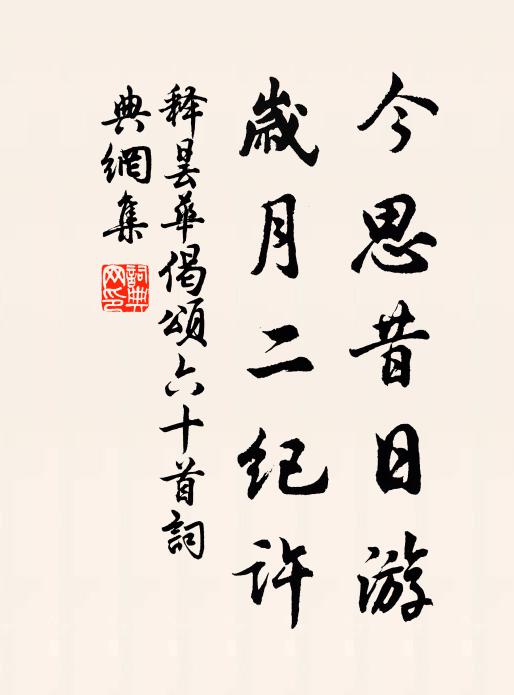 今思昔日游
歲月二紀許
释昙華偈頌六十首詞
典網集
詞典
网印